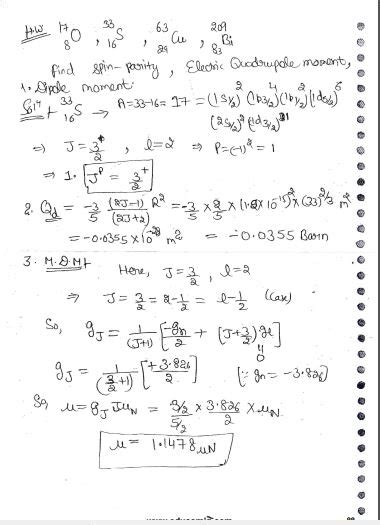 H.W. ¹⁷₈O , ³³₁₆S , ⁶³₂₉Cu , ²⁰⁹₈₃Bi
find spin-parity, Electric Quadrupole moment,
1. Dipole moment.
Solⁿ ³³₁₆S → A=33-16=17=(1S₁/₂)²(1p₃/₂)⁴(1p₁/₂)²(1d₅/₂)⁶
(2S₁/₂)²(1d₃/₂)¹
⇒ J=3/2⁺ , l=2 ⇒ P=(-1)²=1
⇒ 1. Jᴾ = 3/2⁺
2. Qd = -3/5 (2J-1)/(2J+2) R² = -3/5 × 2/5 × (1.2×10⁻¹⁵)² × (33)^2/3 m²
= -0.0355×10⁻²⁸ m² = -0.0355 Barn
3. M.D.Mt
Here, J=3/2 , l=2
⇒ J=3/2=2-1/2=l-1/2 (Case)
So, gJ = 1/(J+1) [-gn/2 + (J+3/2)gl]
0
gJ = 1/(3/2+1) [+3.826/2] [∵ gn = -3.826]
So, μ=gJ JμN = 3/2/5/2 × 3.826/2 × μN
μ = 1.1478 μN